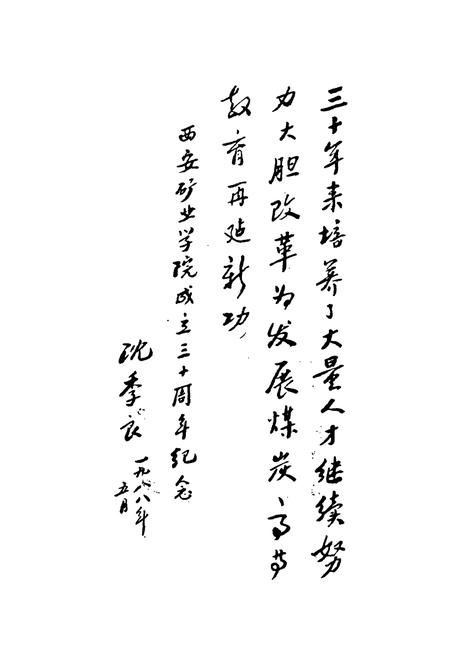 三十年来培养了大量人才继续努
力大胆改革为发展煤炭高等
教育再建新功
西安矿业学院成立三十周年纪念
沈季良 一九八八年
五月